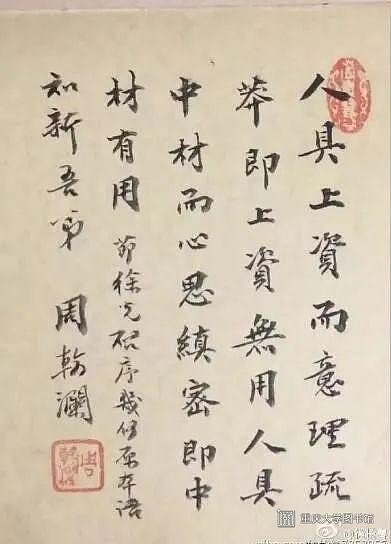 人具上資而意理疏
莽即上資無用人具
中材而心思縝密即中
材有用 節徐光啓序幾何原本語
知新吾弟 周翰瀾
重庆大学图书馆